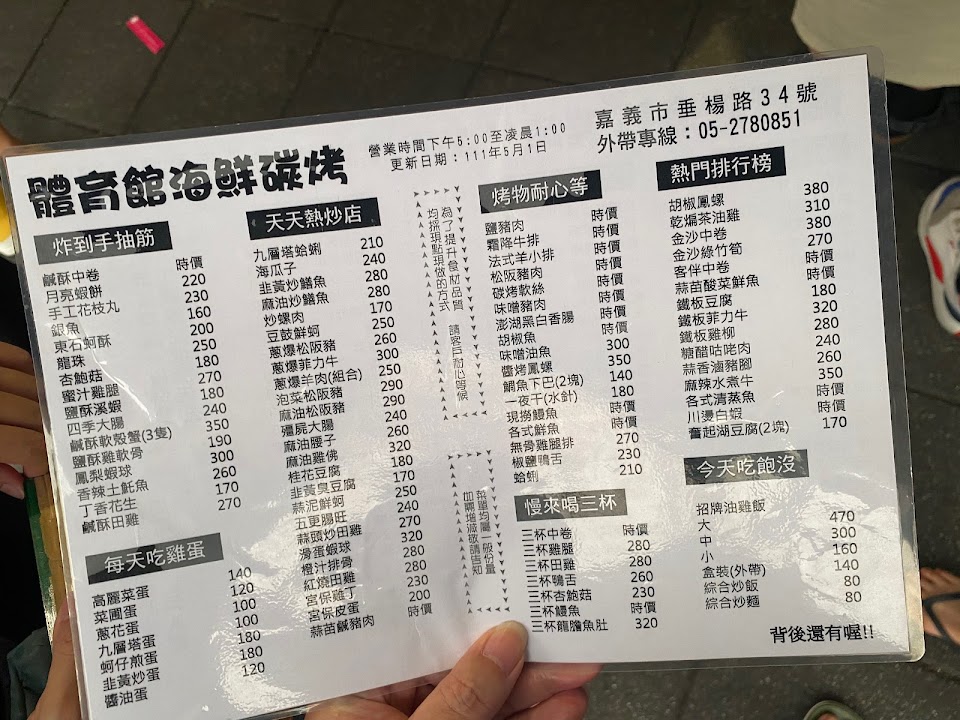 體育館海鮮碳烤
營業時間下午5:00至凌晨1:00
更新日期：111年5月1日
嘉義市垂楊路34號
外帶專線：05-2780851
炸到手抽筋
鹹酥中卷 時價
月亮蝦餅 220
手工花枝丸 230
銀魚 160
東石蚵酥 200
龍珠 250
杏鮑菇 180
蜜汁雞腿 270
鹽酥溪蝦 180
四季大腸 240
鹹酥軟殼蟹(3隻) 350
鹽酥雞軟骨 190
鳳梨蝦球 300
香辣土魠魚 260
丁香花生 170
鹹酥田雞 270
每天吃雞蛋
高麗菜蛋 140
菜圃蛋 120
蔥花蛋 100
九層塔蛋 100
蚵仔煎蛋 180
韭黃炒蛋 180
醬油蛋 120
天天熱炒店
九層塔蛤蜊 210
海瓜子 240
韭黃炒鱔魚 280
麻油炒鱔魚 280
炒螺肉 170
豆鼓鮮蚵 250
蔥爆松阪豬 260
蔥爆菲力牛 300
蔥爆羊肉(組合) 250
泡菜松阪豬 290
麻油松阪豬 290
殭屍大腸 240
麻油腰子 260
麻油雞佛 320
桂花豆腐 180
韭黃臭豆腐 170
蒜泥鮮蚵 250
五更腸旺 240
蒜頭炒田雞 270
滑蛋蝦球 320
橙汁排骨 280
紅燒田雞 280
宮保雞丁 230
宮保皮蛋 200
蒜苗鹹豬肉 時價
為了提升食材品質
均採現點現做的方式 請客戶耐心等候
菜單均屬一般份量
如需增減敬請告知
烤物耐心等
鹽豬肉 時價
霜降牛排 時價
法式羊小排 時價
松阪豬肉 時價
碳烤軟絲 時價
味噌豬肉 時價
澎湖黑白香腸 時價
胡椒魚 時價
味噌油魚 300
醬烤鳳螺 350
鯛魚下巴(2塊) 140
一夜干(水針) 180
現撈鰻魚 時價
各式鮮魚 時價
無骨雞腿排 270
椒鹽鴨舌 230
蛤蜊 210
慢來喝三杯
三杯中卷 時價
三杯雞腿 280
三杯田雞 280
三杯鴨舌 260
三杯杏鮑菇 230
三杯鰻魚 時價
三杯龍膽魚肚 320
熱門排行榜
胡椒鳳螺 380
乾煸茶油雞 310
金沙中卷 380
金沙綠竹筍 270
客伴中卷 時價
蒜苗酸菜鮮魚 時價
鐵板豆腐 180
鐵板菲力牛 320
鐵板雞柳 280
糖醋咕咾肉 240
蒜香滷豬腳 260
麻辣水煮牛 350
各式清蒸魚 時價
川燙白蝦 時價
奮起湖豆腐(2塊) 170
今天吃飽沒
招牌油雞飯
大 470
中 300
小 160
盒裝(外帶) 140
綜合炒飯 80
綜合炒麵 80
背後還有喔!!